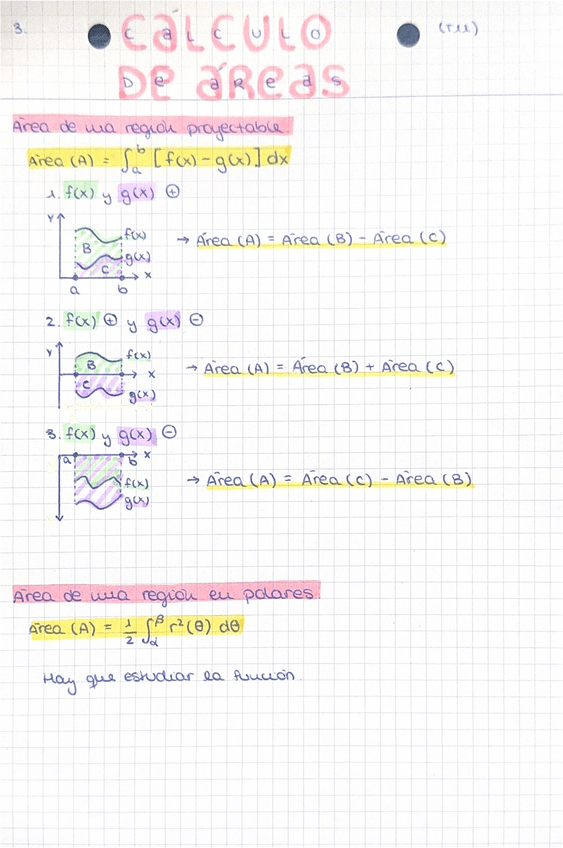 3.
CÁLCULO
(T11)
DE ÁREAS
Área de una región proyectable
Área (A) = ∫ₐᵇ [f(x) - g(x)] dx
1. f(x) y g(x) ⊕
Y
f(x)
B
g(x)
C
x
a b
→ Área (A) = Área (B) - Área (C)
2. f(x) ⊕ y g(x) ⊖
Y
f(x)
B
x
C
g(x)
→ Área (A) = Área (B) + Área (C)
3. f(x) y g(x) ⊖
a b x
f(x)
g(x)
→ Área (A) = Área (C) - Área (B)
Área de una región en polares
Área (A) = 1/2 ∫_α^β r²(θ) dθ
Hay que estudiar la función